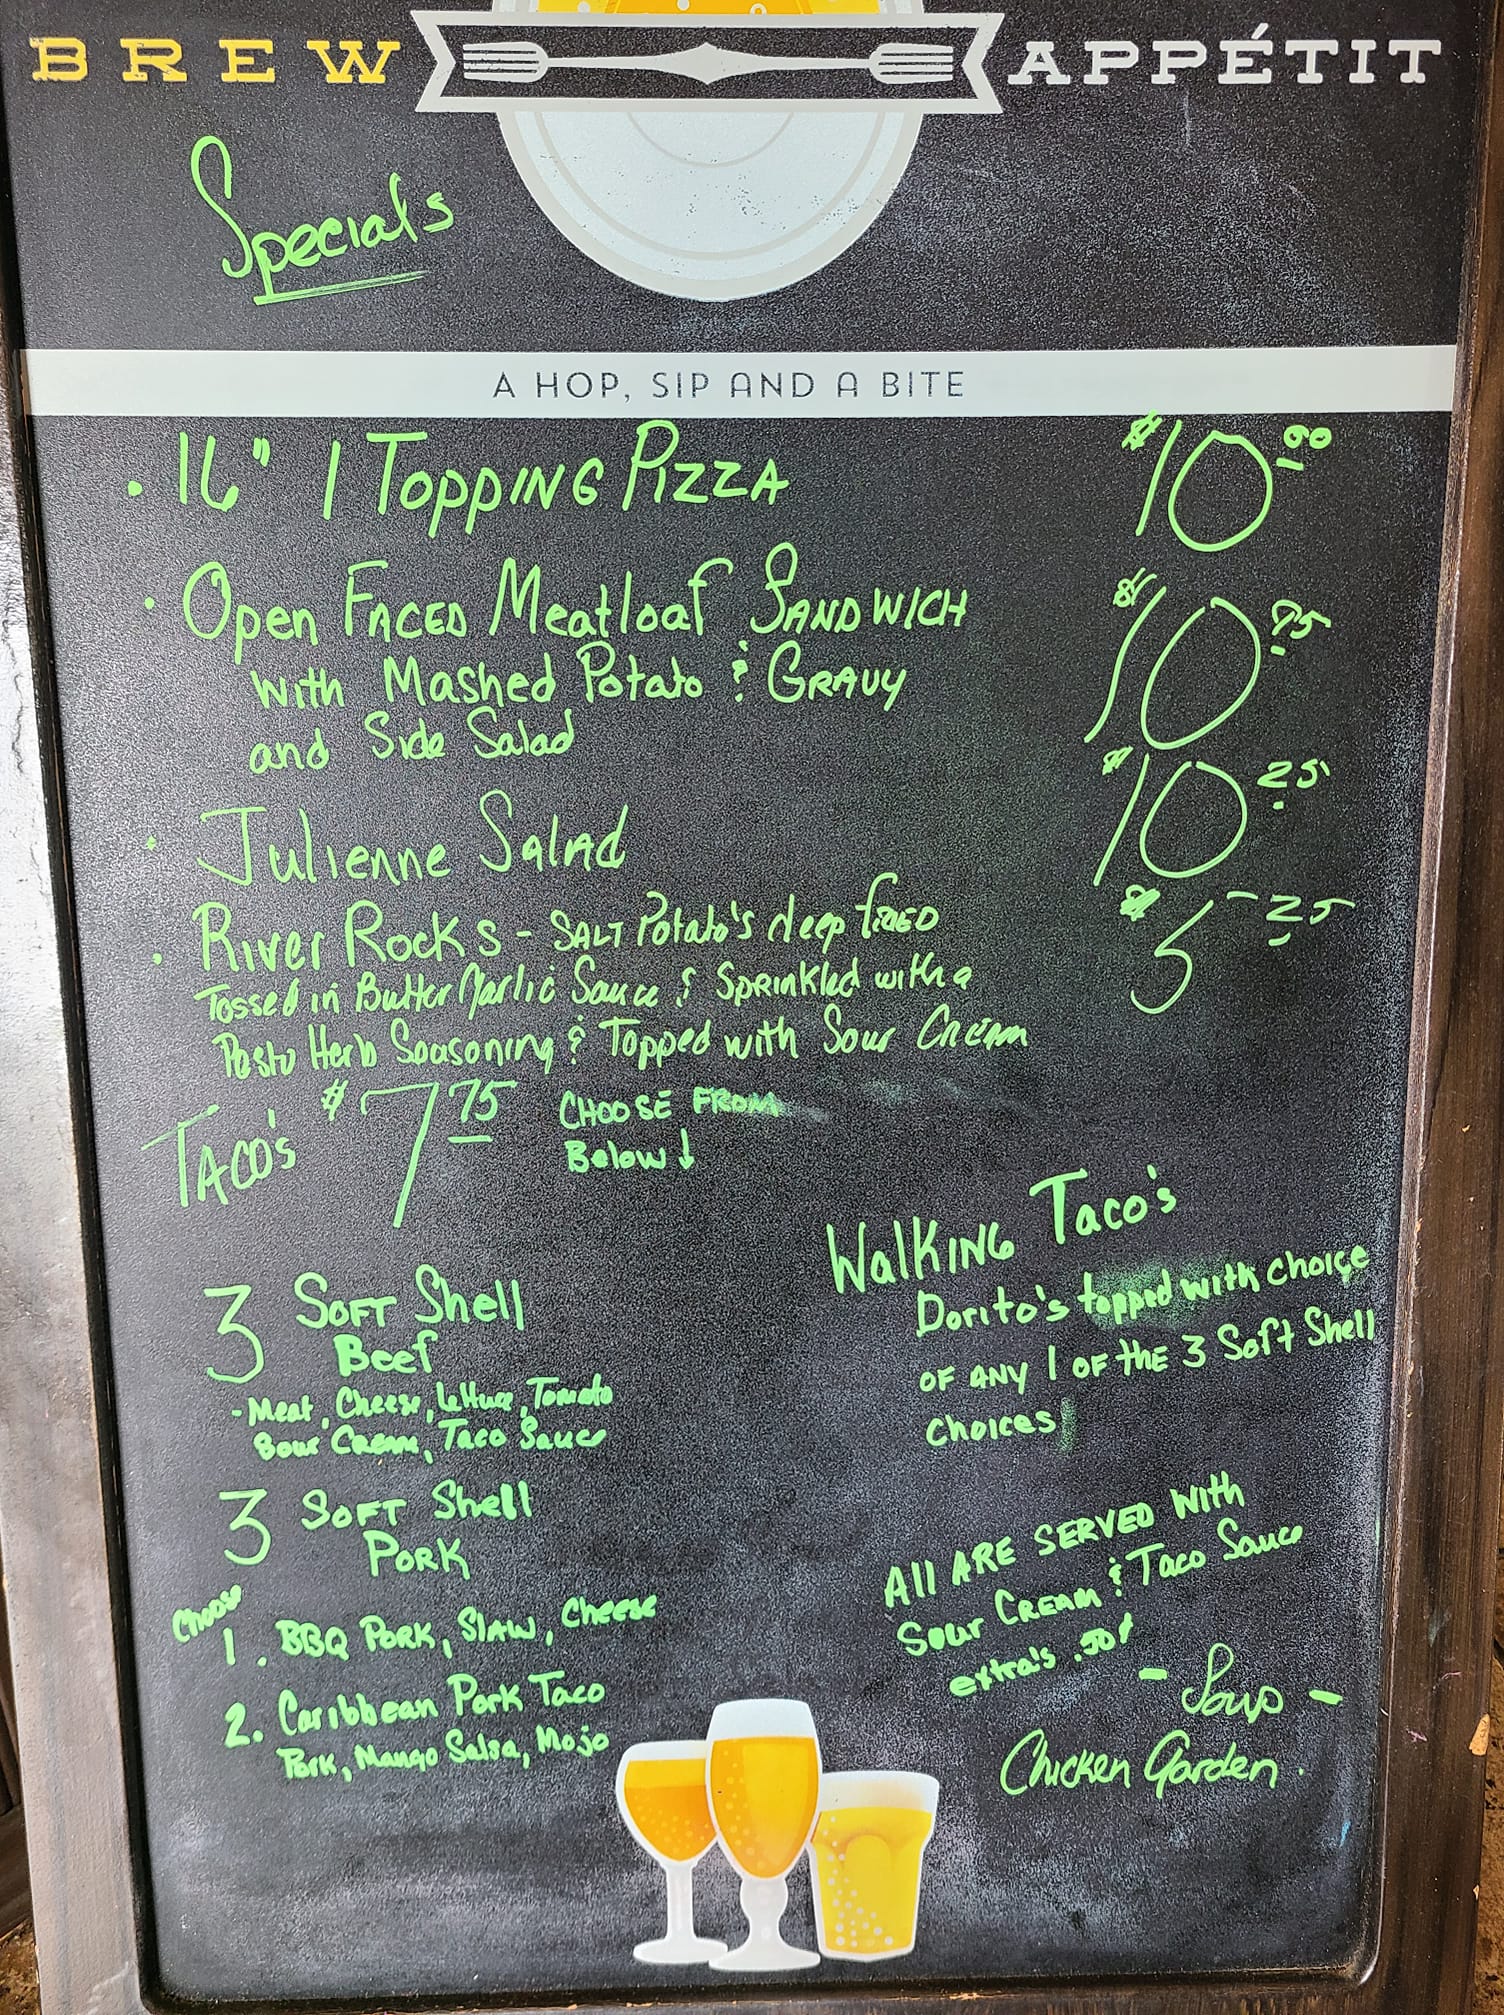 BREW APPÉTIT
Specials
A HOP, SIP AND A BITE
• 16" 1 TOPPING PIZZA $10.00
• Open FACED Meatloaf SANDWICH $10.75
with Mashed Potato & GRAVY
and Side Salad
• Julienne Salad $10.25
• River Rocks - SALT Potato's deep fried $5-25
Tossed in Butter Garlic Sauce & Sprinkled with a
Pesto Herb Seasoning & Topped with Sour Cream
TACO'S $7.75 CHOOSE FROM
Below ↓
3 SOFT Shell
Beef
- Meat, Cheese, Lettuce, Tomato
Sour Cream, Taco Sauce
3 SOFT Shell
PORK
Choose
1. BBQ PORK, SLAW, Cheese
2. Caribbean Pork Taco
Pork, Mango Salsa, Mojo
WalKING Taco's
Dorito's topped with choice
OF ANY 1 OF the 3 Soft Shell
choices
All ARE SERVED With
Sour CREAM & Taco Sauce
extra's .50¢
- Soup -
Chicken Garden.